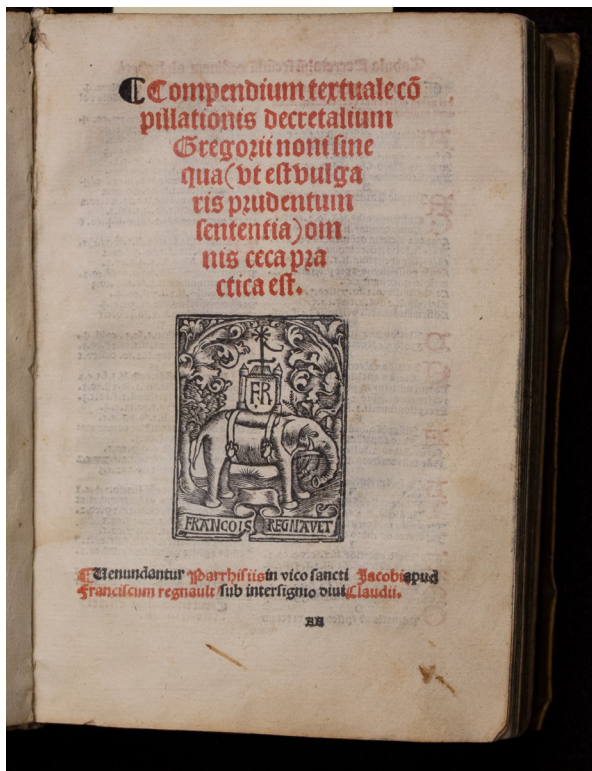 ⸿ Compendium textuale cō
pillationis decretalium
Gregorii noni sine
qua (vt est vulga
ris prudentum
sententia) om
nis ceca pra
ctica est.
F.R
FRANCOIS REGNAVET
⸿ Uenundantur Parrhisiis in vico sancti Jacobi apud
Franciscum regnault sub intersignio diui Claudii.
AA